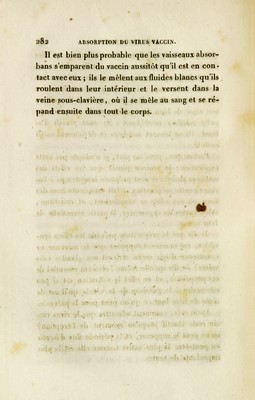 282 ABSORPTION DU VIRUS VACCIN.
Il est bien plus probable que les vaisseaux absor-
bans s'emparent du vaccin aussitôt qu'il est en con-
tact avec eux ; ils le mêlent aux fluides blancs qu'ils
roulent dans leur intérieur et le versent dans la
veine sous-clavière, où il se mêle au sang et se ré-
pand ensuite dans tout le corps.